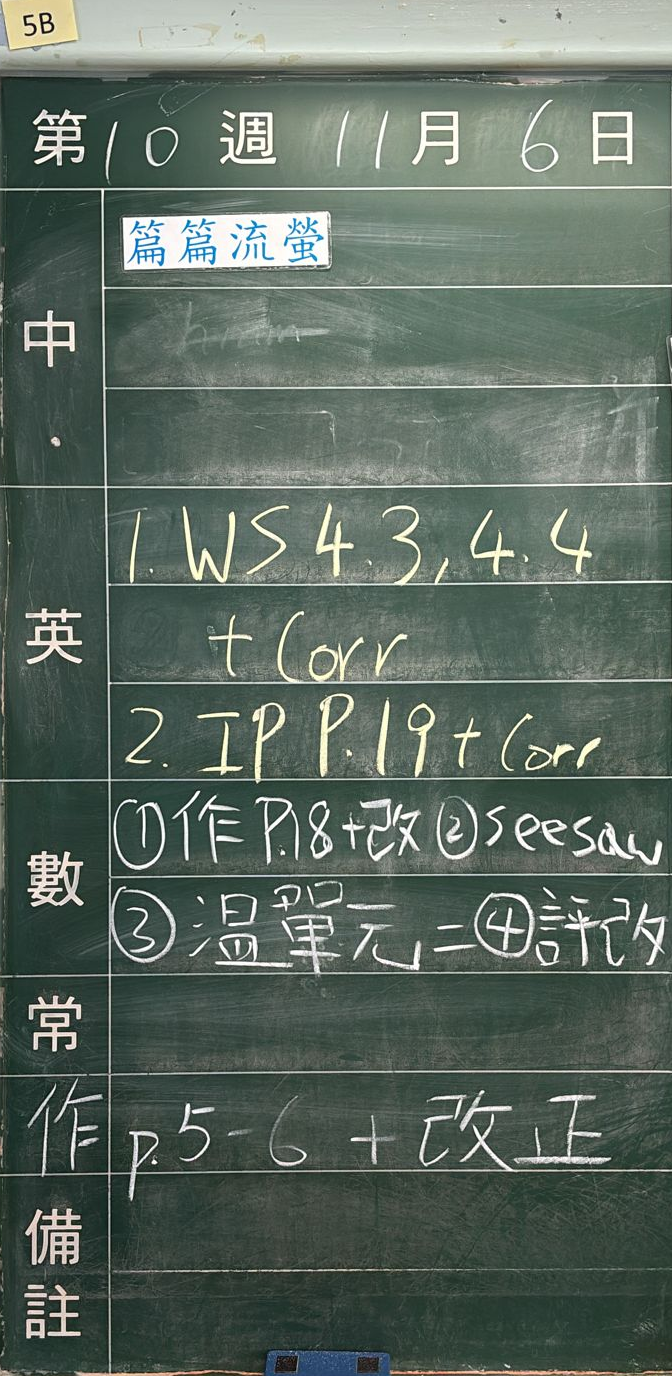 5B
第10週 11月6日
中
篇篇流螢
英
1. WS 4.3, 4.4
+ Corr
2. IP P.19 + Corr
數
①作 P.18+改 ②seesaw
③溫單元二 ④評改
常
作 p.5-6 + 改正
備註